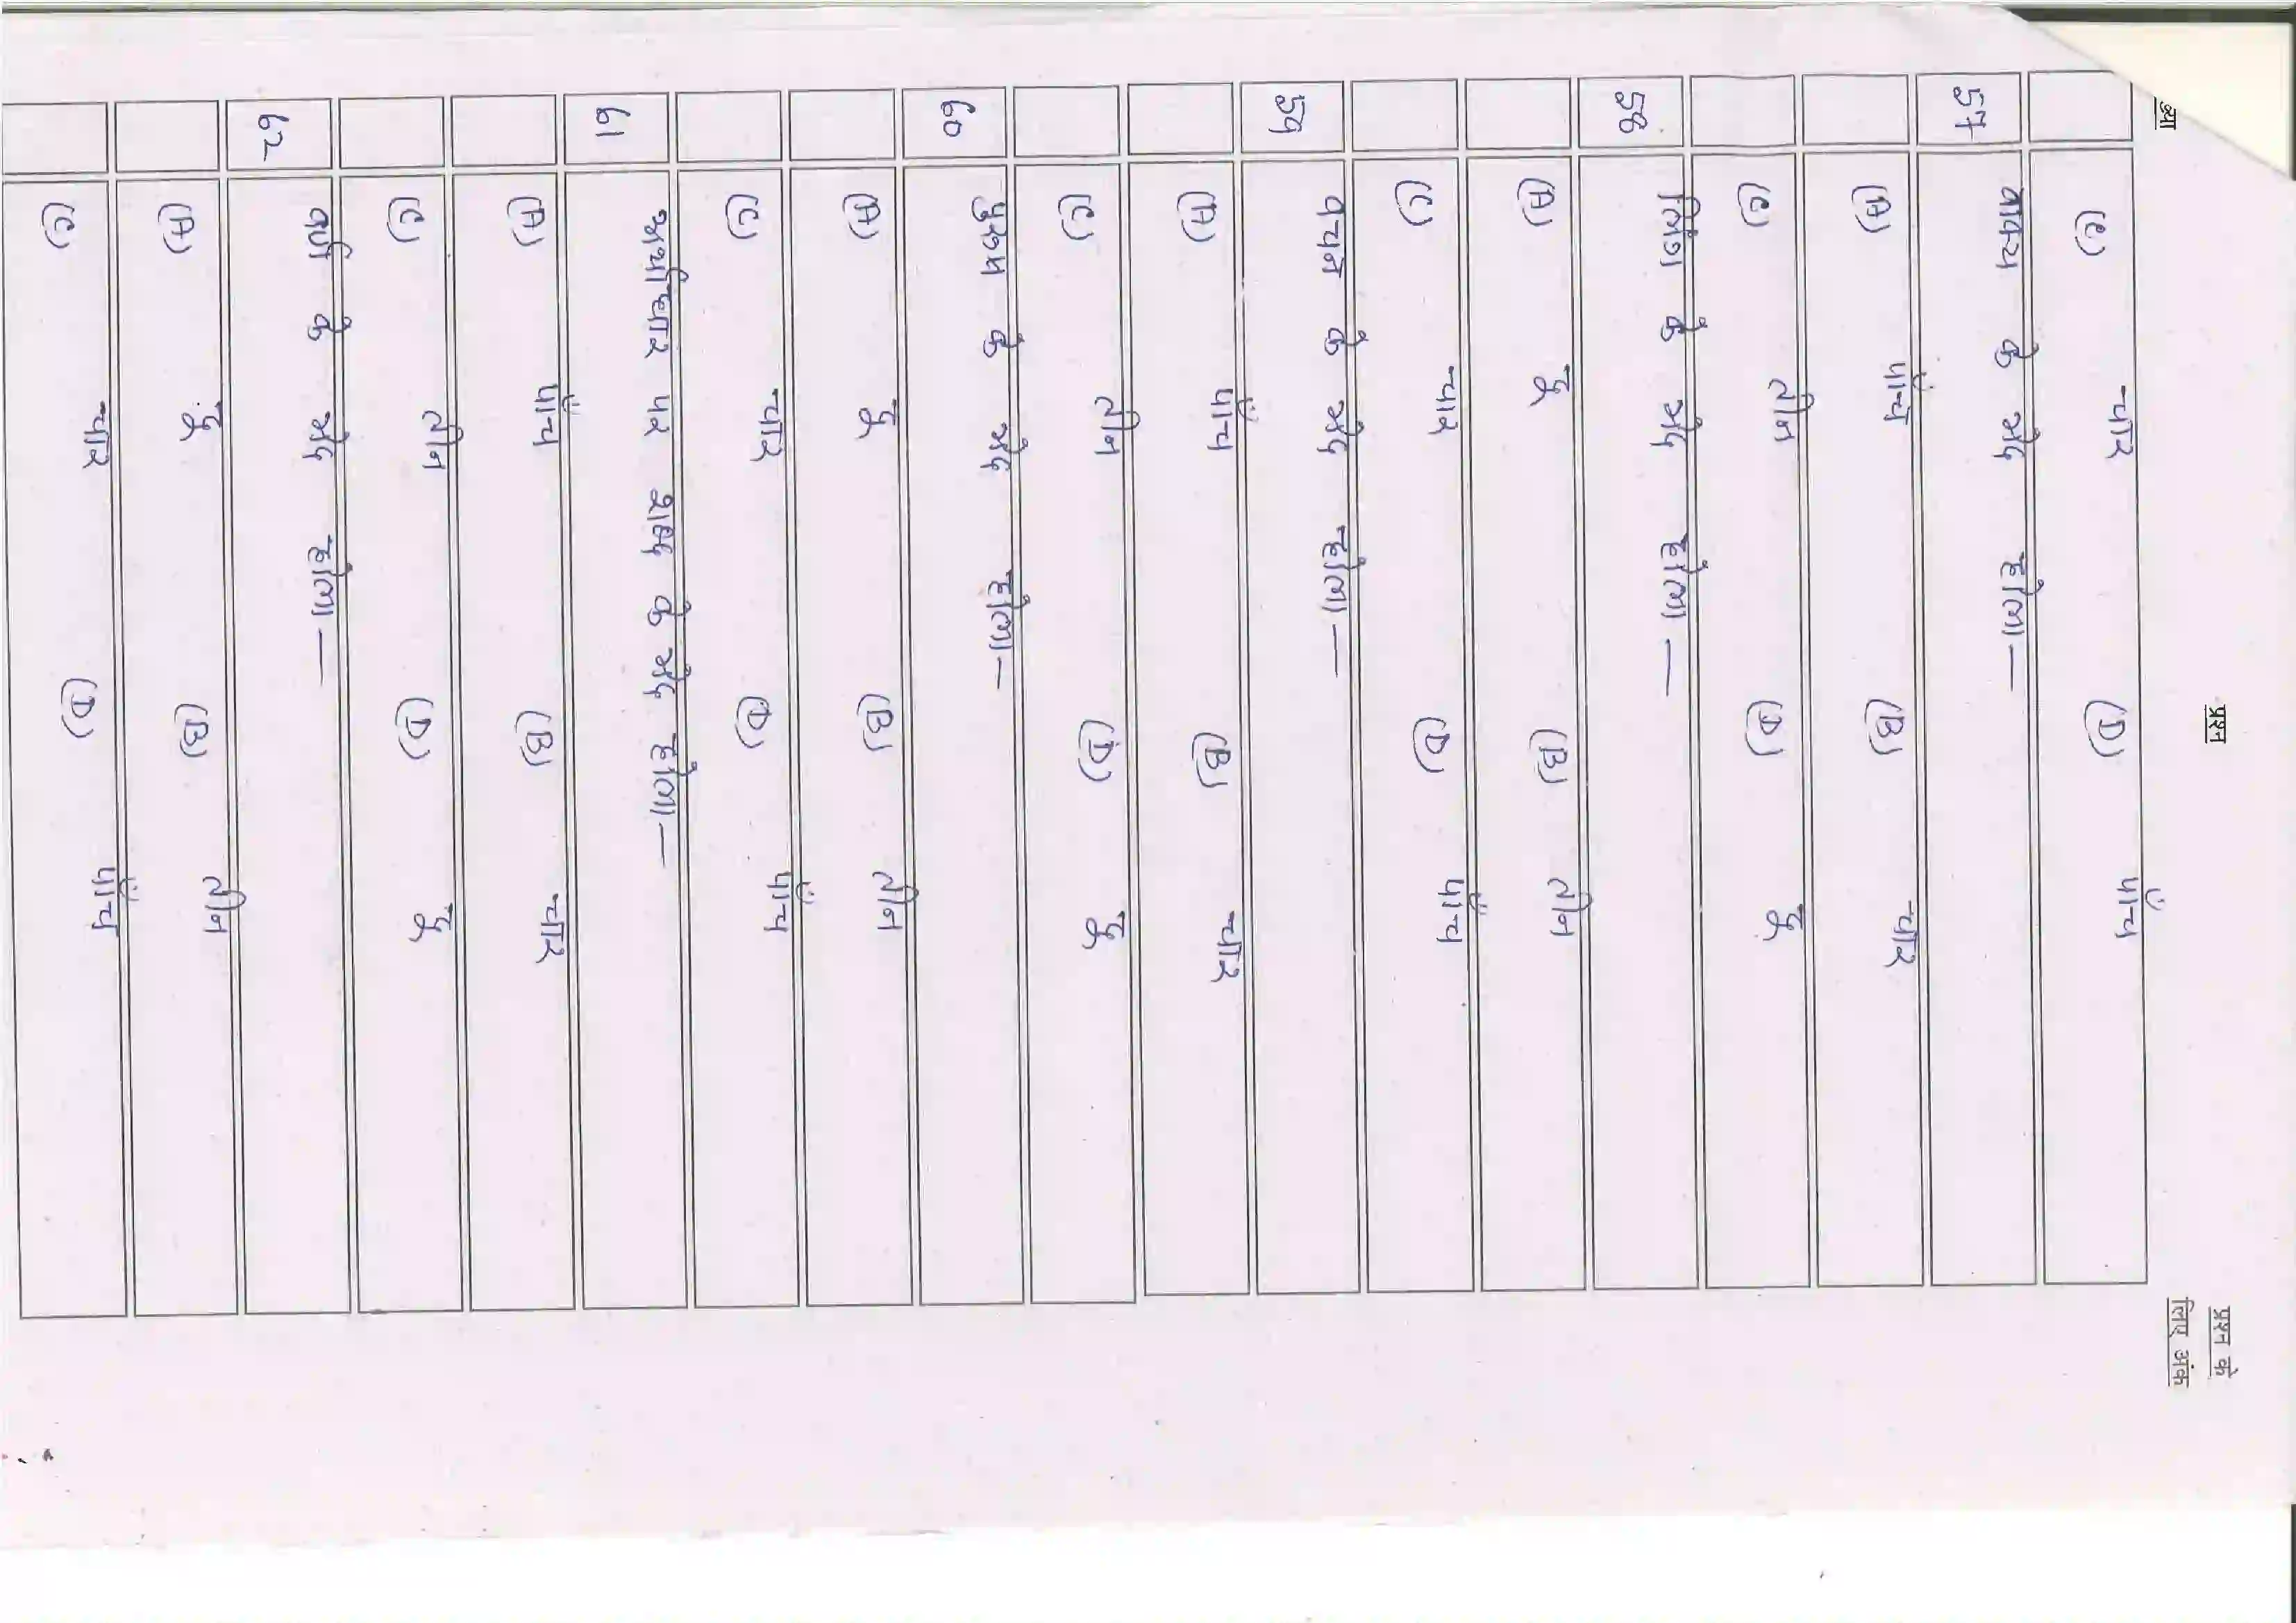 ख्या
प्रश्न
प्रश्न के
लिए अंक
(C) चार (D) पाँच
57 वाक्य के भेद होला —
(A) पाँच (B) चार
(C) तीन (D) दू
58 लिंग के भेद होला —
(A) दू (B) तीन
(C) चार (D) पाँच
59 वचन के भेद होला —
(A) पाँच (B) चार
(C) तीन (D) दू
60 पुरूष के भेद होला —
(A) दू (B) तीन
(C) चार (D) पाँच
61 अर्थविचार पर शब्द के भेद होला —
(A) पाँच (B) चार
(C) तीन (D) दू
62 वर्ण के भेद होला —
(A) दू (B) तीन
(C) चार (D) पाँच